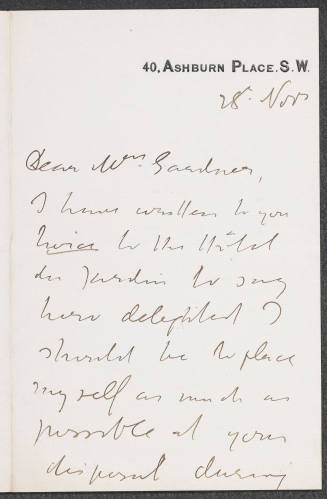 40, ASHBURN PLACE. S.W.
28. Nov
Dear Mrs Gardner,
I have written to you
twice to the Hôtel
du Jardin to say
how delighted I
should be to place
myself as much as
possible at your
disposal during